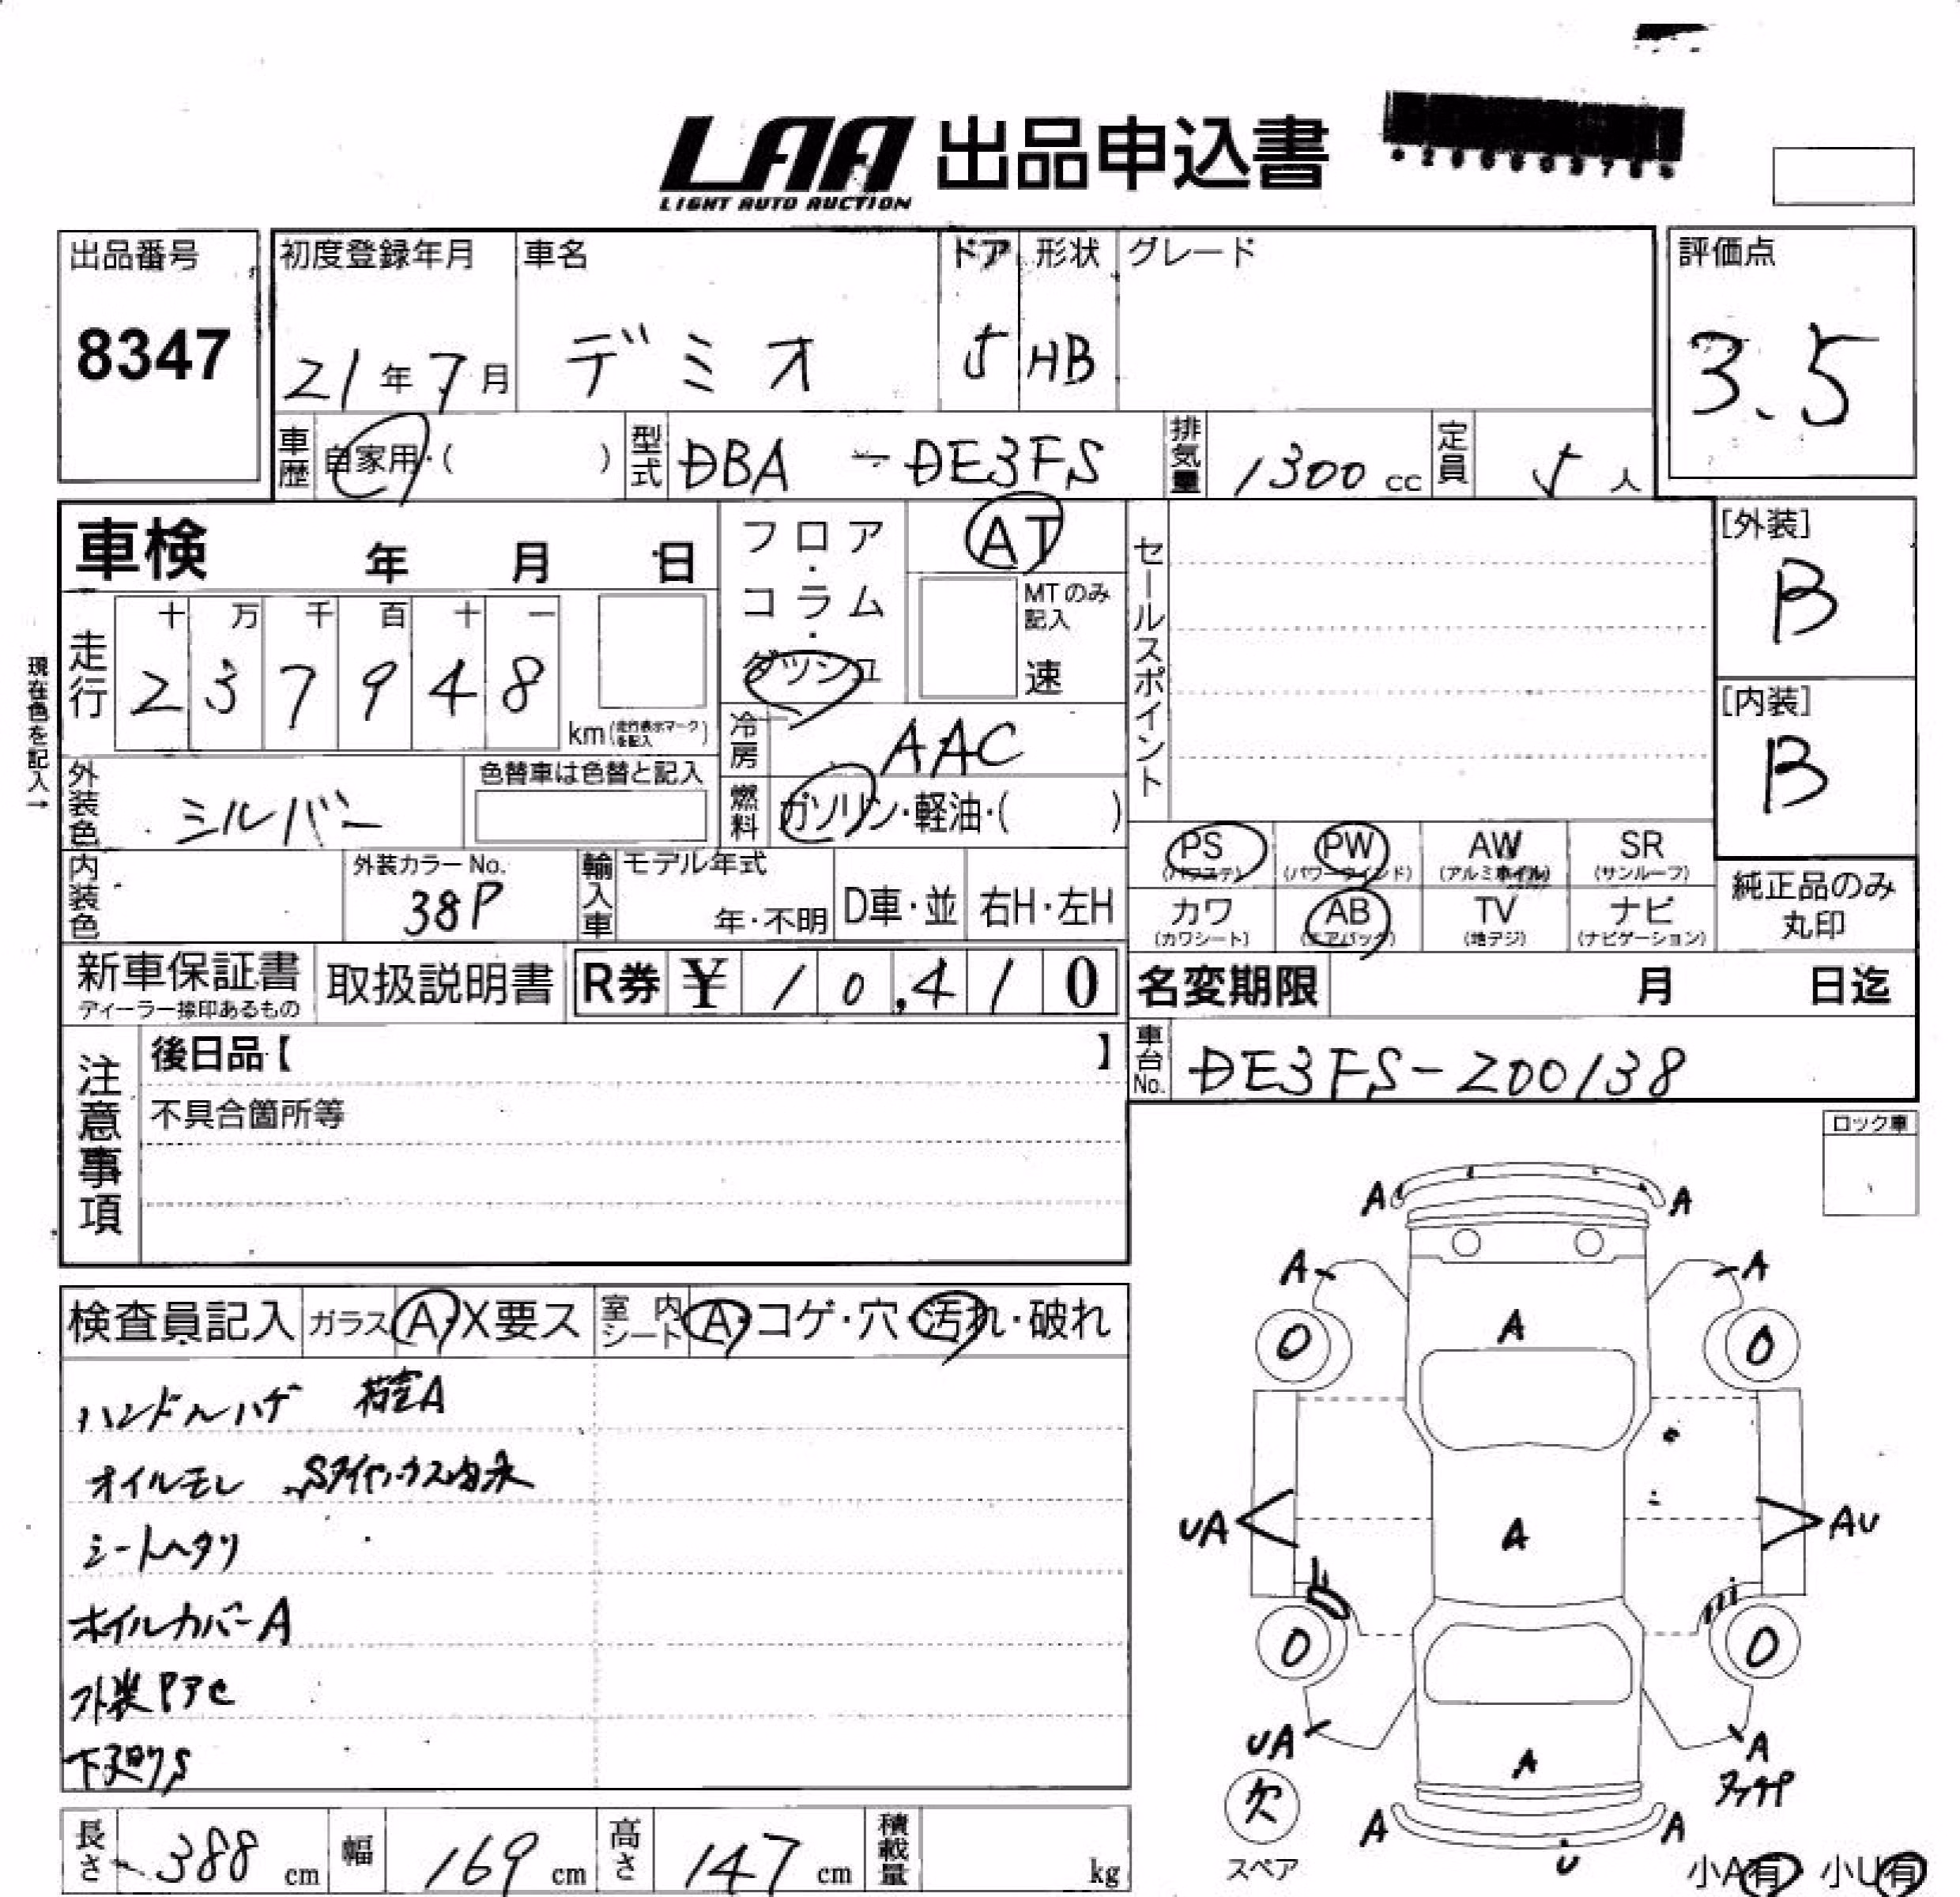 LAA 出品申込書
LIGHT AUTO AUCTION
出品番号
8347
初度登録年月
21年7月
車名
デミオ
ドア
5
形状
HB
グレード
評価点
3.5
車歴
自家用・( )
型式
DBA-DE3FS
排気量
1300cc
定員
5人
車検 年 月 日
フロア・コラム・ダッシュ
AT
MTのみ記入
速
セールスポイント
[外装]
B
[内装]
B
現在色を記入→
走行
十 万 千 百 十 一
2 3 7 9 4 8
km(走行表示マークを記入)
冷房
AAC
燃料
ガソリン・軽油・( )
外装色
シルバー
色替車は色替と記入
内装色
外装カラーNo.
38P
輸入車
モデル年式
年・不明
D車・並
右H・左H
PS
(パワステ)
PW
(パワーウインド)
AW
(アルミホイル)
SR
(サンルーフ)
カワ
(カワシート)
AB
(エアバッグ)
TV
(地デジ)
ナビ
(ナビゲーション)
純正品のみ
丸印
新車保証書
ディーラー捺印あるもの
取扱説明書
R券 ¥ 10,410
名変期限 月 日迄
車台No.
DE3FS-200138
注意事項
後日品【 】
不具合箇所等
ロック車
検査員記入
ガラス A・X要ス
室内シート A・コゲ・穴・汚れ・破れ
ハンドルハゲ 荷室A
オイルモレ
シートヘタリ
ホイルカバーA
外装Pアセ
下廻りS
A A
A A
A
0 0
UA A AU
0 0
UA A A
欠
スペア
A A
U
小A有 小U有
長さ 388cm
幅 169cm
高さ 147cm
積載量 kg